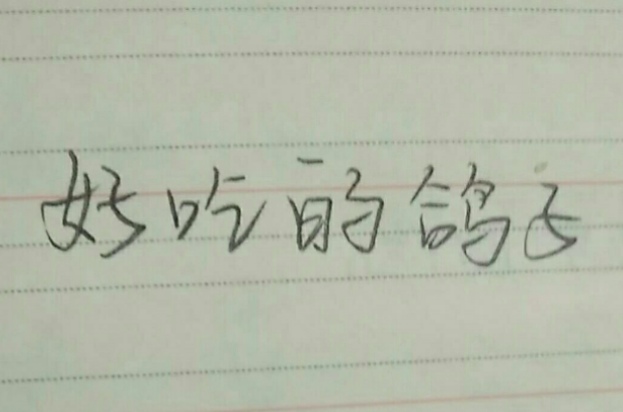 好吃的鸽子